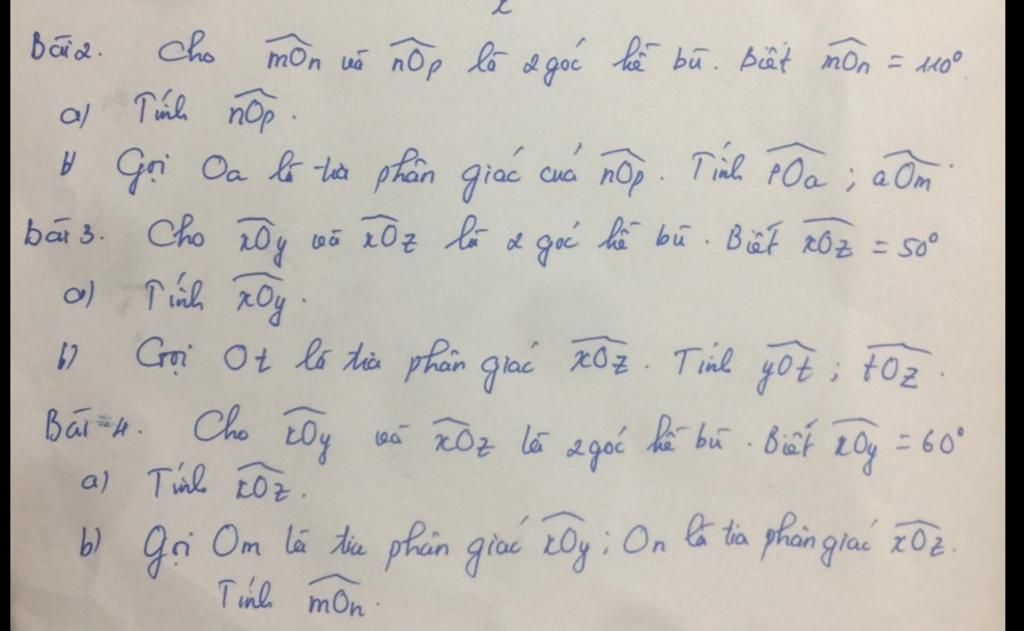 Bài 2. Cho mOn và nOp là 2 góc kề bù. Biết mOn = 110°
a) Tính nOp.
b) Gọi Oa là tia phân giác của nOp. Tính pOa ; aOm.
Bài 3. Cho xOy và xOz là 2 góc kề bù. Biết xOz = 50°
a) Tính xOy.
b) Gọi Ot là tia phân giác xOz. Tính yOt ; tOz.
Bài 4. Cho xOy và xOz là 2 góc kề bù. Biết xOy = 60°
a) Tính xOz.
b) Gọi Om là tia phân giác xOy ; On là tia phân giác xOz.
Tính mOn.